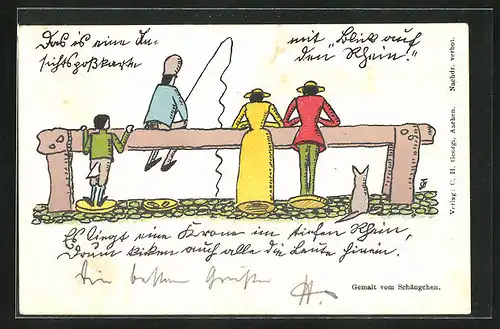 Das is eine An-
sichtspoßkarte
mit "Blick auf
den Rhein."
Es liegt eine Krone im tiefen Rhein,
Drum kiken auch alle die Leute hinein.
Die besten Grüße
Gemalt vom Schängchen.
Verlag: C. H. Georgi, Aachen. Nachdr. verbot.